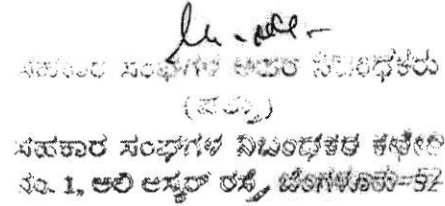 ಸಹಕಾರ ಸಂಘಗಳ ಅಪರ ನಿಬಂಧಕರು
ಸಹಕಾರ ಸಂಘಗಳ ನಿಬಂಧಕರ ಕಛೇರಿ
ನಂ. 1, ಅಲಿ ಆಸ್ಕರ್ ರಸ್ತೆ, ಬೆಂಗಳೂರು-52